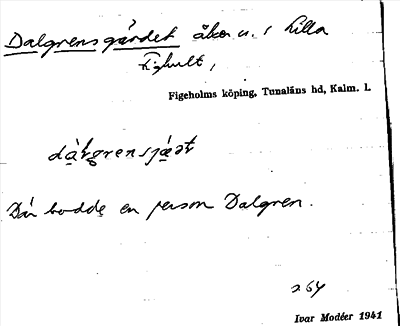 Dalgrensgärdet åker u. i Lilla
Fighult,
Figeholms köping, Tunaläns hd, Kalm. L
Där bodde en person Dalgren.
264
Ivar Modéer 1941